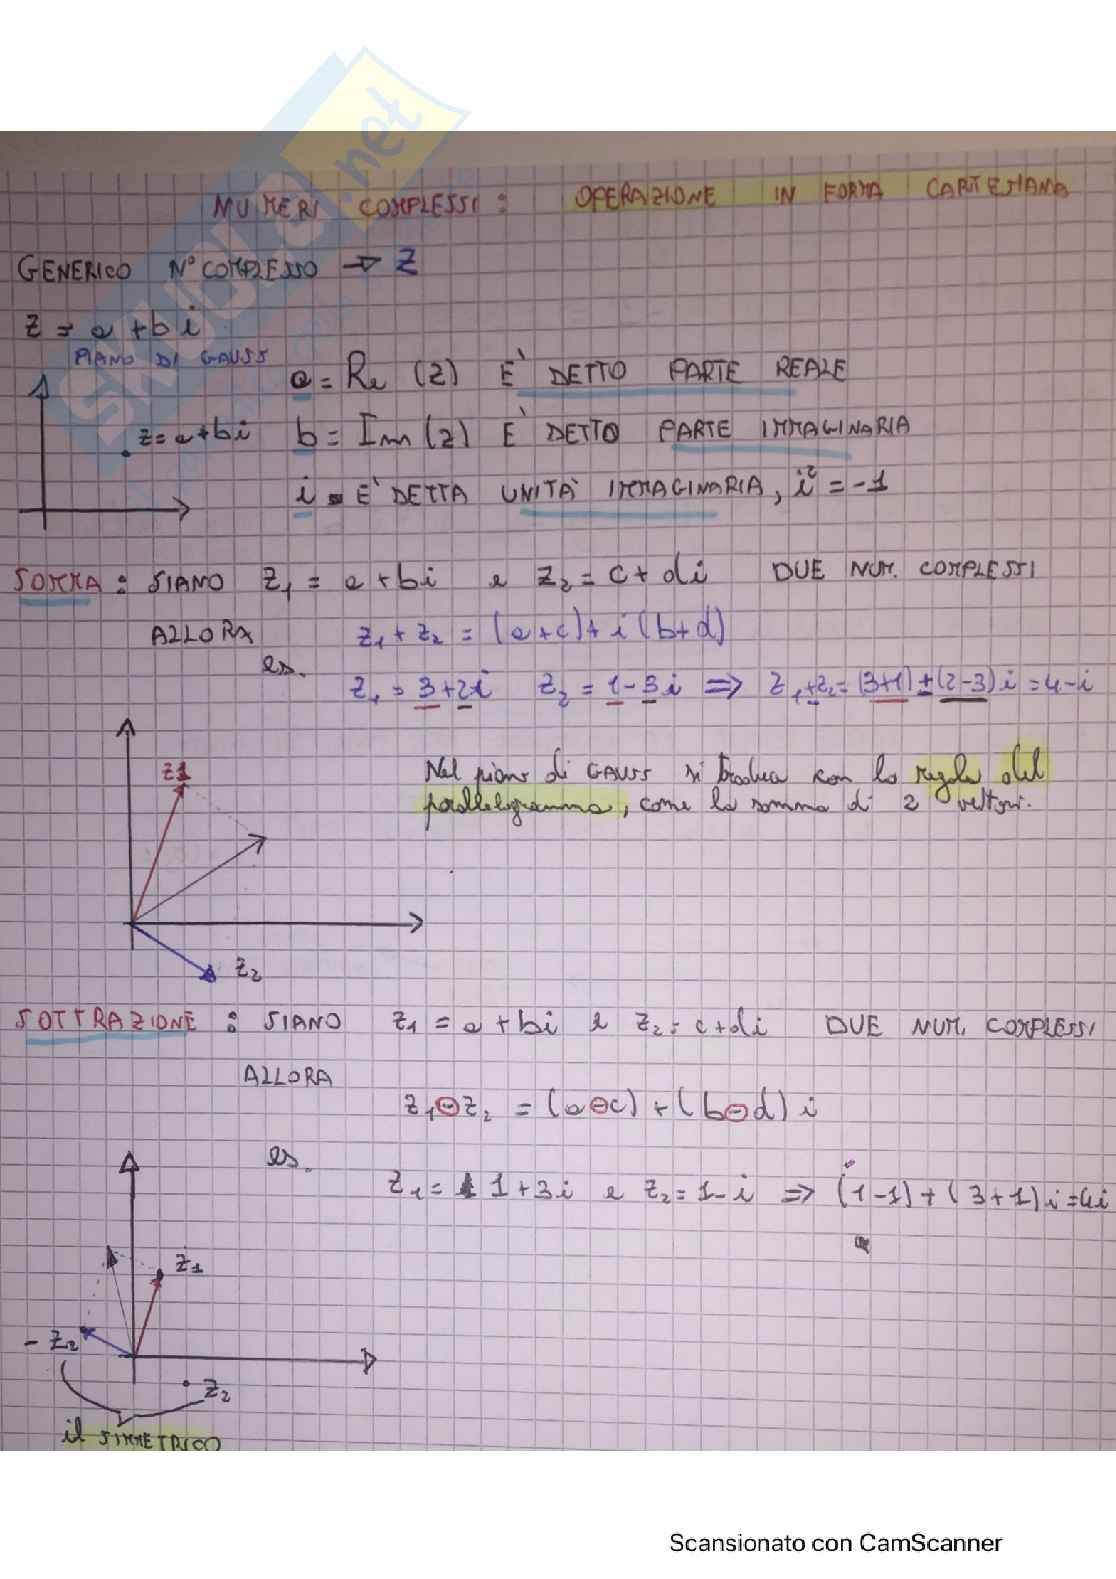 SKUOLA.net
NUMERI COMPLESSI: OPERAZIONE IN FORMA CARTESIANA
GENERICO N° COMPLESSO → Z
z = a + b i
PIANO DI GAUSS
a = Re (z) E' DETTO PARTE REALE
z = a + b i
b = Im (z) E' DETTO PARTE IMMAGINARIA
i = E' DETTA UNITA' IMMAGINARIA, i² = -1
SOMMA: SIANO z₁ = a + bi e z₂ = c + di DUE NUM. COMPLESSI
ALLORA z₁ + z₂ = (a+c) + i (b+d)
es.
z₁ = 3 + 2i z₂ = 1 - 3i => z₁+z₂ = (3+1) + (2-3) i = 4 - i
z1
Nel piano di GAUSS si traduce con la regola del
parallelogramma, come la somma di 2 vettori.
z₂
SOTTRAZIONE: SIANO z₁ = a + bi e z₂ = c + di DUE NUM. COMPLESSI
ALLORA
z₁ - z₂ = (a - c) + (b - d) i
es.
z₁ = 1 + 3i e z₂ = 1 - i => (1-1) + (3+1) i = 4i
z₁
- z₂
z₂
il SIMMETRICO
Scansionato con CamScanner